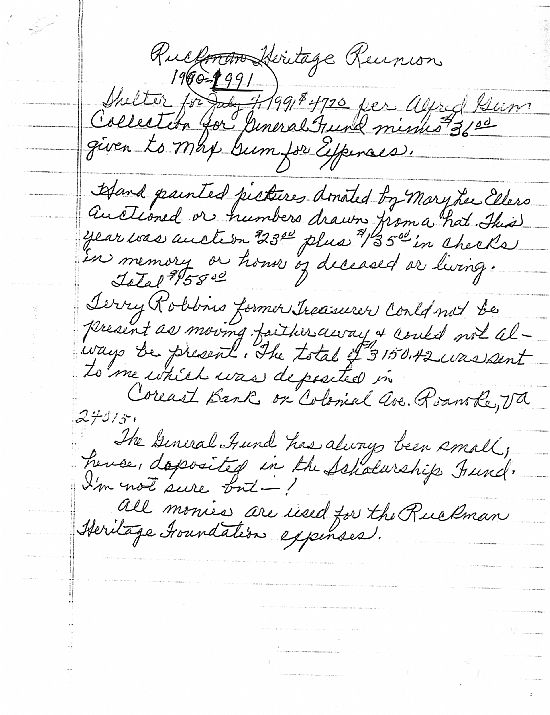 Ruckman Heritage Reunion
1990-1991
Shelter for July 4, 1991 $47.20 per Alfred Gum
Collection for General Fund minus $36.00
given to Max Gum for Expenses.
Hand painted pictures donated by Mary Lee Ellers
auctioned or numbers drawn from a hat. This
year was auction $23.00 plus $135.00 in checks
in memory or honor of deceased or living.
Total $158.00
Terry Robbins former Treasurer could not be
present as moving farther away & could not al-
ways be present. The total of $3150.42 was sent
to me which was deposited in
Coreast Bank on Colonial Ave. Roanoke, Va
24015.
The General Fund has always been small,
hense, deposited in the Scholarship Fund.
I'm not sure but—!
All monies are used for the Ruckman
Heritage Foundation expenses.